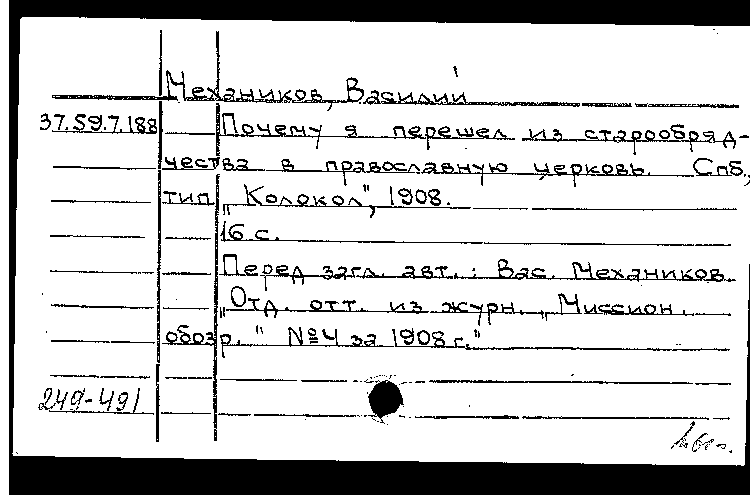 Механиков, Василий
37.59.7.188 Почему я перешел из старообряд-
чества в православную церковь. Спб.,
тип. „Колокол", 1908.
16 с.
Перед загл. авт.: Вас. Механиков.
„Отд. отт. из журн. „Миссион.
обозр." №4 за 1908 г."
249-491